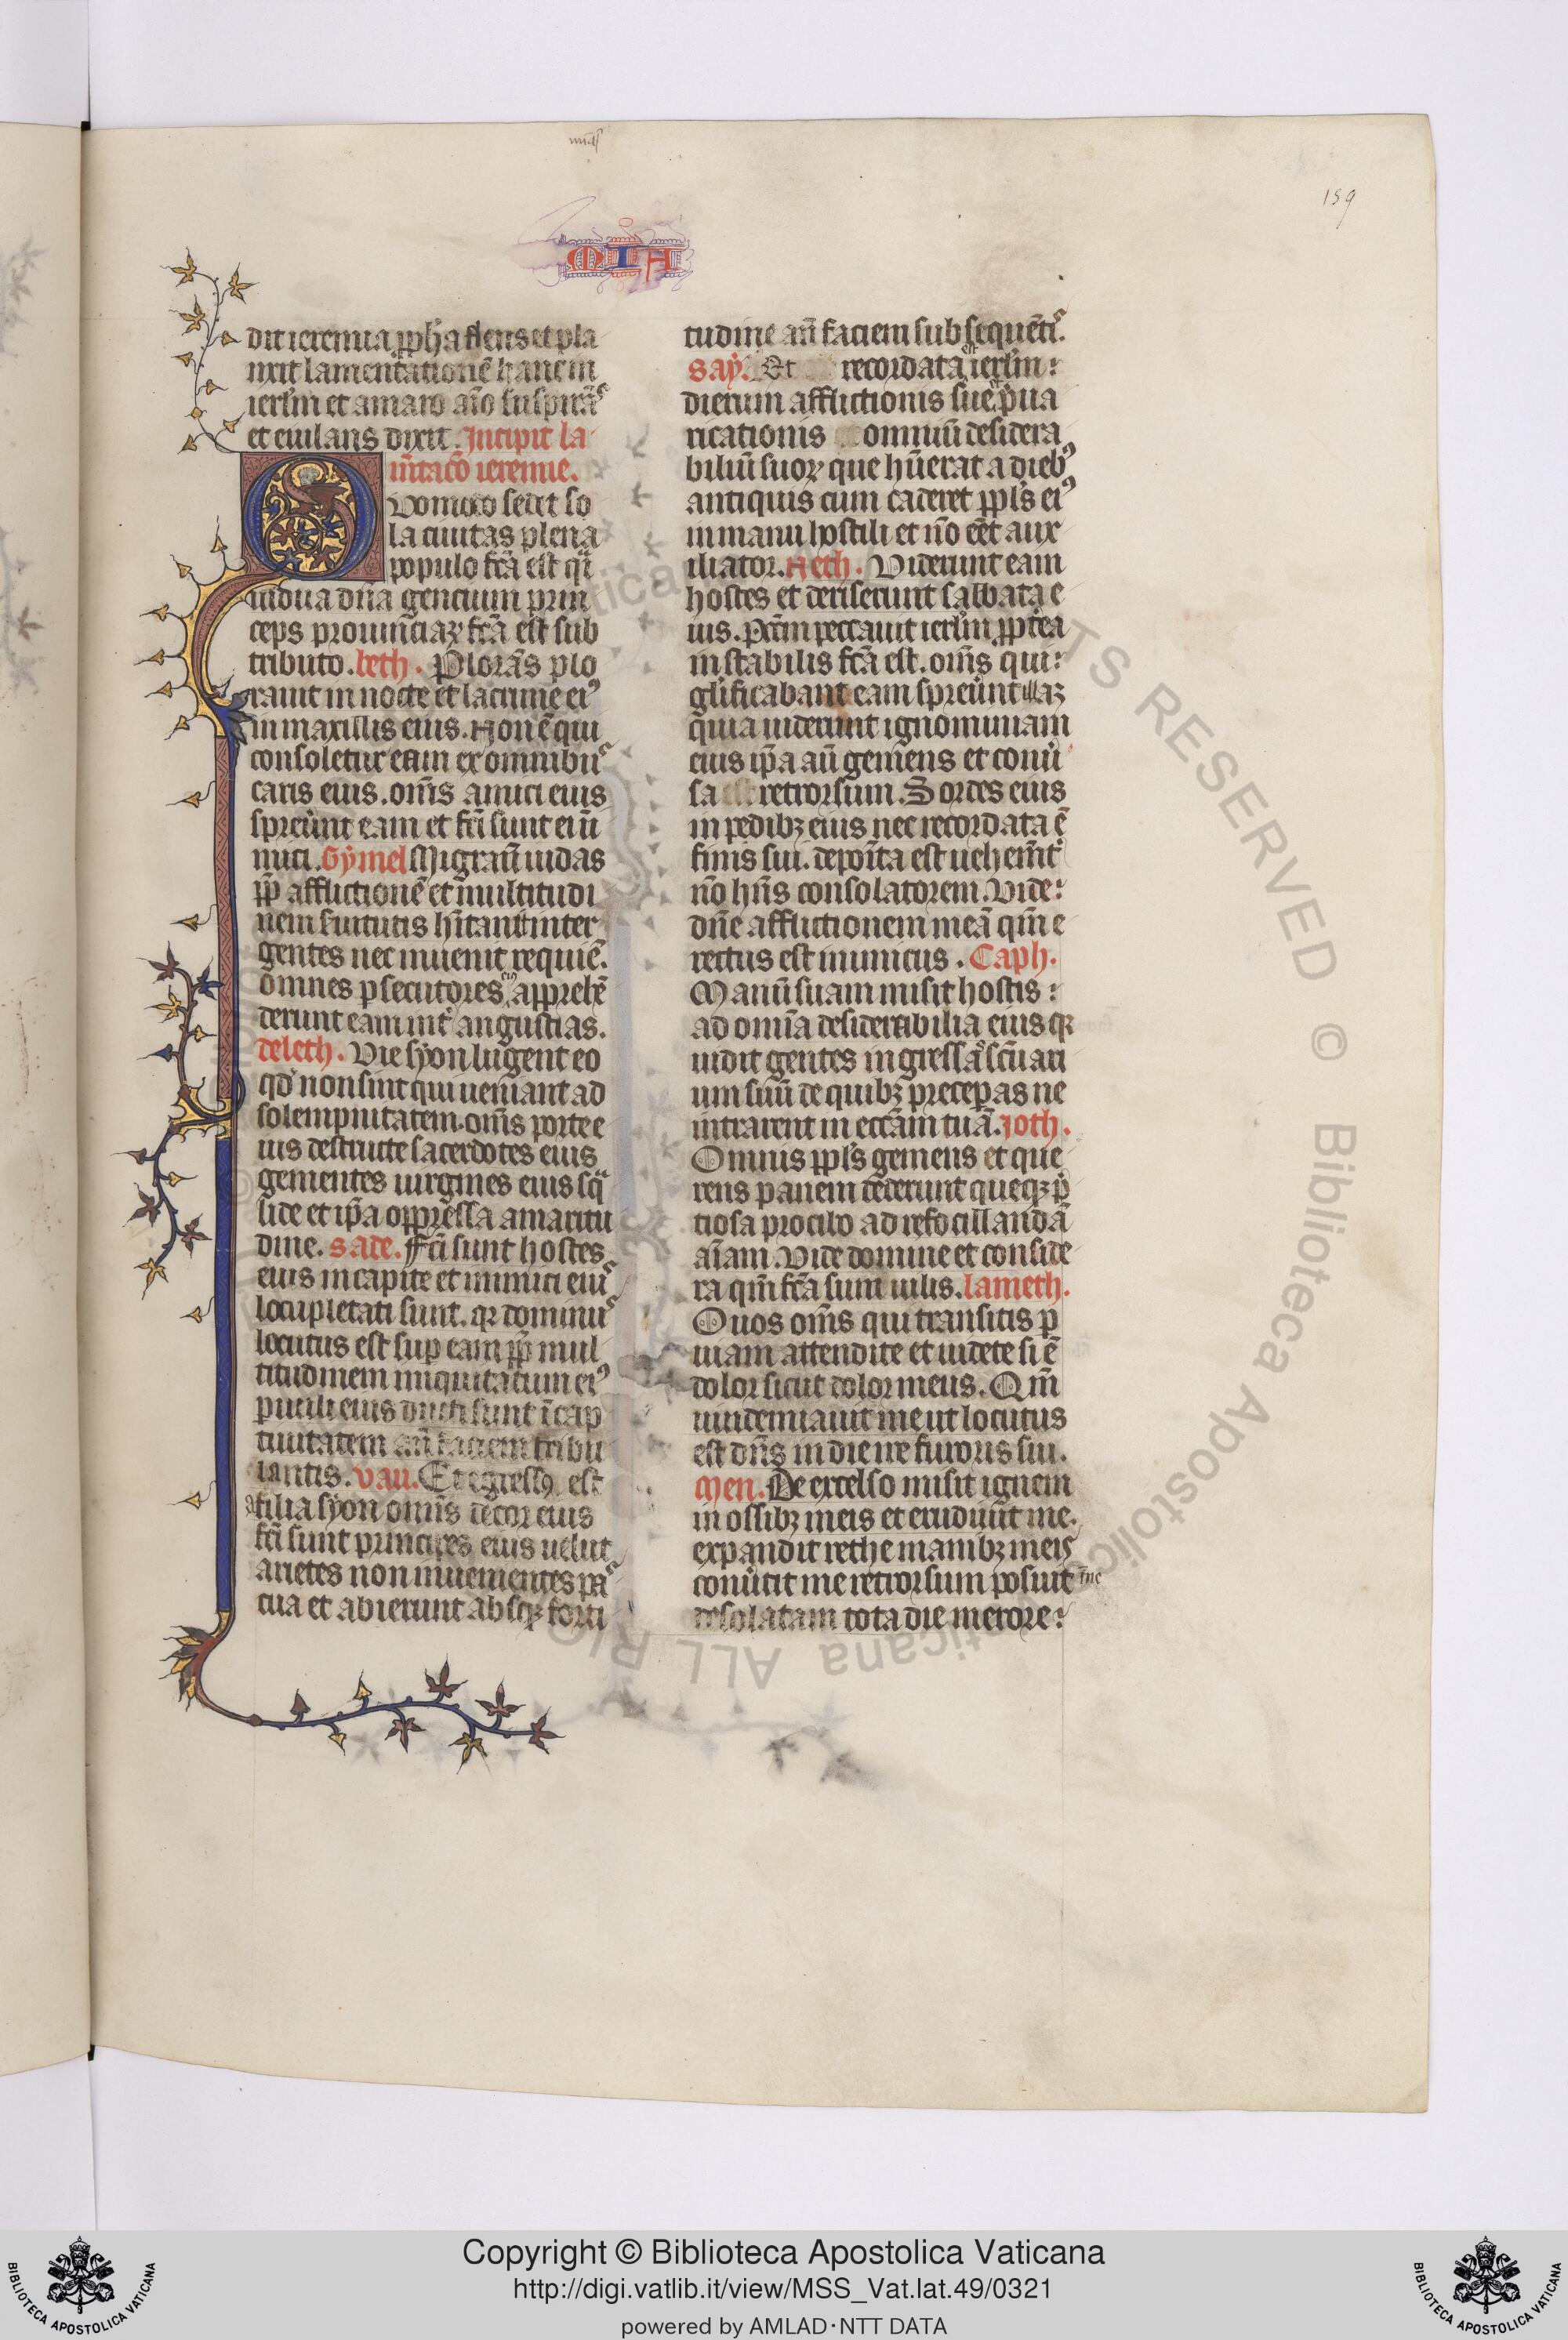 MIA
159
dit ieremia ꝓph̄a flens et pla
nxit lamentationē hanc in
ierl̄m et amaro aīo suspirās
et eiulans dixit. Incipit la
m̄tac̄o ieremie.
Quomodo sedet so
la ciuitas plena
populo fc̄a est qͣi
uidua dn̄a gencium prin
ceps prouinciaꝝ fc̄a est sub
tributo. beth. Plorās plo
rauit in nocte et lacrime eiꝰ
in maxillis eius. Non ē qui
consoletur eam ex omnibus
caris eius. om̄s amici eius
spreuͬnt eam et fc̄i sunt ei ini
mici. Gymel Migrauit iudas
ꝓp̄ afflictionē et multitudi
nem seruitutis hītauit inter
gentes nec inuenit requiē.
omnes ꝑsecutores eiꝰ apprehē
derunt eam int̓ angustias.
deleth. Vie syon lugent eo
qd̓ non sint qui ueniant ad
solempnitatem. om̄s porte e
ius destructe sacerdotes eius
gementes uirgines eius sqͣ
lide et ip̄a oppressa amaritu
dine. sade. Fc̄i sunt hostes
eius in capite et inimici eius
locupletati sunt. qꝛ dominus
locutus est suꝑ eam ꝓp̄ mul
titudinem iniquitatum eiꝰ
paruuli eius ducti sunt ī cap
tiuitatem an̄ faciem tribu
lantis. vau. Et egressꝰ est
a filia syon omīs decor eius
fc̄i sunt principes eius uelut
arietes non inuenientes pas
cua et abierunt absqꝫ forti
tudine an̄ faciem subsequēt̓.
say. Et recordata est ierl̄m
dierum afflictionis sue et p̄ua
ricationis omniū desidera
biliū suoꝝ que hūerat a diebꝰ
antiquis cum caderet ppl̄s eiꝰ
in manu hostili et nō eēt aux
iliator. Heth. Viderunt eam
hostes et deriserunt sabbata e
ius. Pcc̄m peccauit ierl̄m ꝓpt̓ea
instabilis fc̄a est. om̄s qui
gl̓ificabant eam spreuͬnt illaꝫ
quia uiderunt ignominiam
eius ip̄a aū gemens et conuͬ
sa est retrorsum. Sordes eius
in pedibꝫ eius nec recordata ē
finis sui. deposīta est uehem̄t̓
nō hn̄s consolatorem. Vide
dn̄e afflictionem meā qm̄ e
rectus est inimicus. Caph.
Manū suam misit hostis
ad omīa desiderabilia eius qꝛ
uidit gentes ingressas sc̄uari
um suū de quibꝫ preceperas ne
intrarent in ecc̄am tuā. joth.
Omnis ppl̄s gemens et que
rens panem dederunt queqꝫ p̄
tiosa pro cibo ad refocillandā
aīam. Vide domine et conside
ra qm̄ fc̄a sum uilis. lameth.
O uos om̄s qui transitis ꝑ
uiam attendite et uidete si ē
dolor sicut dolor meus. Qm̄
uindemiauit me ut locutus
est dn̄s in die ire furoris sui.
Men. De excelso misit ignem
in ossibꝫ meis et erudiuit me.
expandit rethe manibꝫ meis
conuͬtit me retrorsum posuit me
desolatam tota die merore
Copyright © Biblioteca Apostolica Vaticana
http://digi.vatlib.it/view/MSS_Vat.lat.49/0321
powered by AMLAD·NTT DATA
BIBLIOTECA APOSTOLICA VATICANA
BIBLIOTECA APOSTOLICA VATICANA